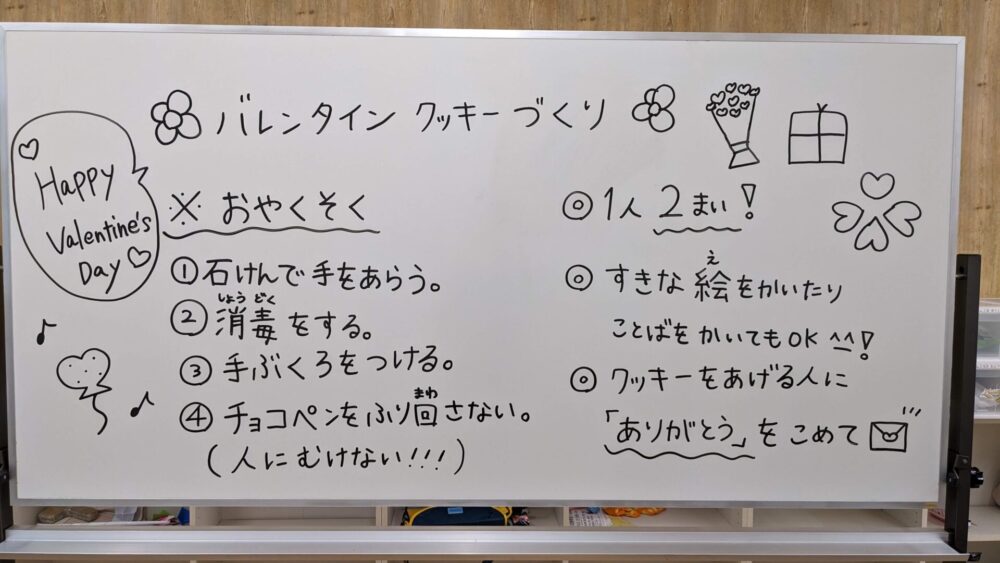 バレンタイン クッキーづくり
Happy
Valentine's
Day
※ おやくそく
①石けんで手をあらう。
②消毒をする。
しょうどく
③手ぶくろをつける。
④チョコペンをふり回さない。
まわ
(人にむけない!!!)
◎1人2まい!
◎すきな絵をかいたり
え
ことばをかいてもOK ^^!
◎クッキーをあげる人に
「ありがとう」をこめて